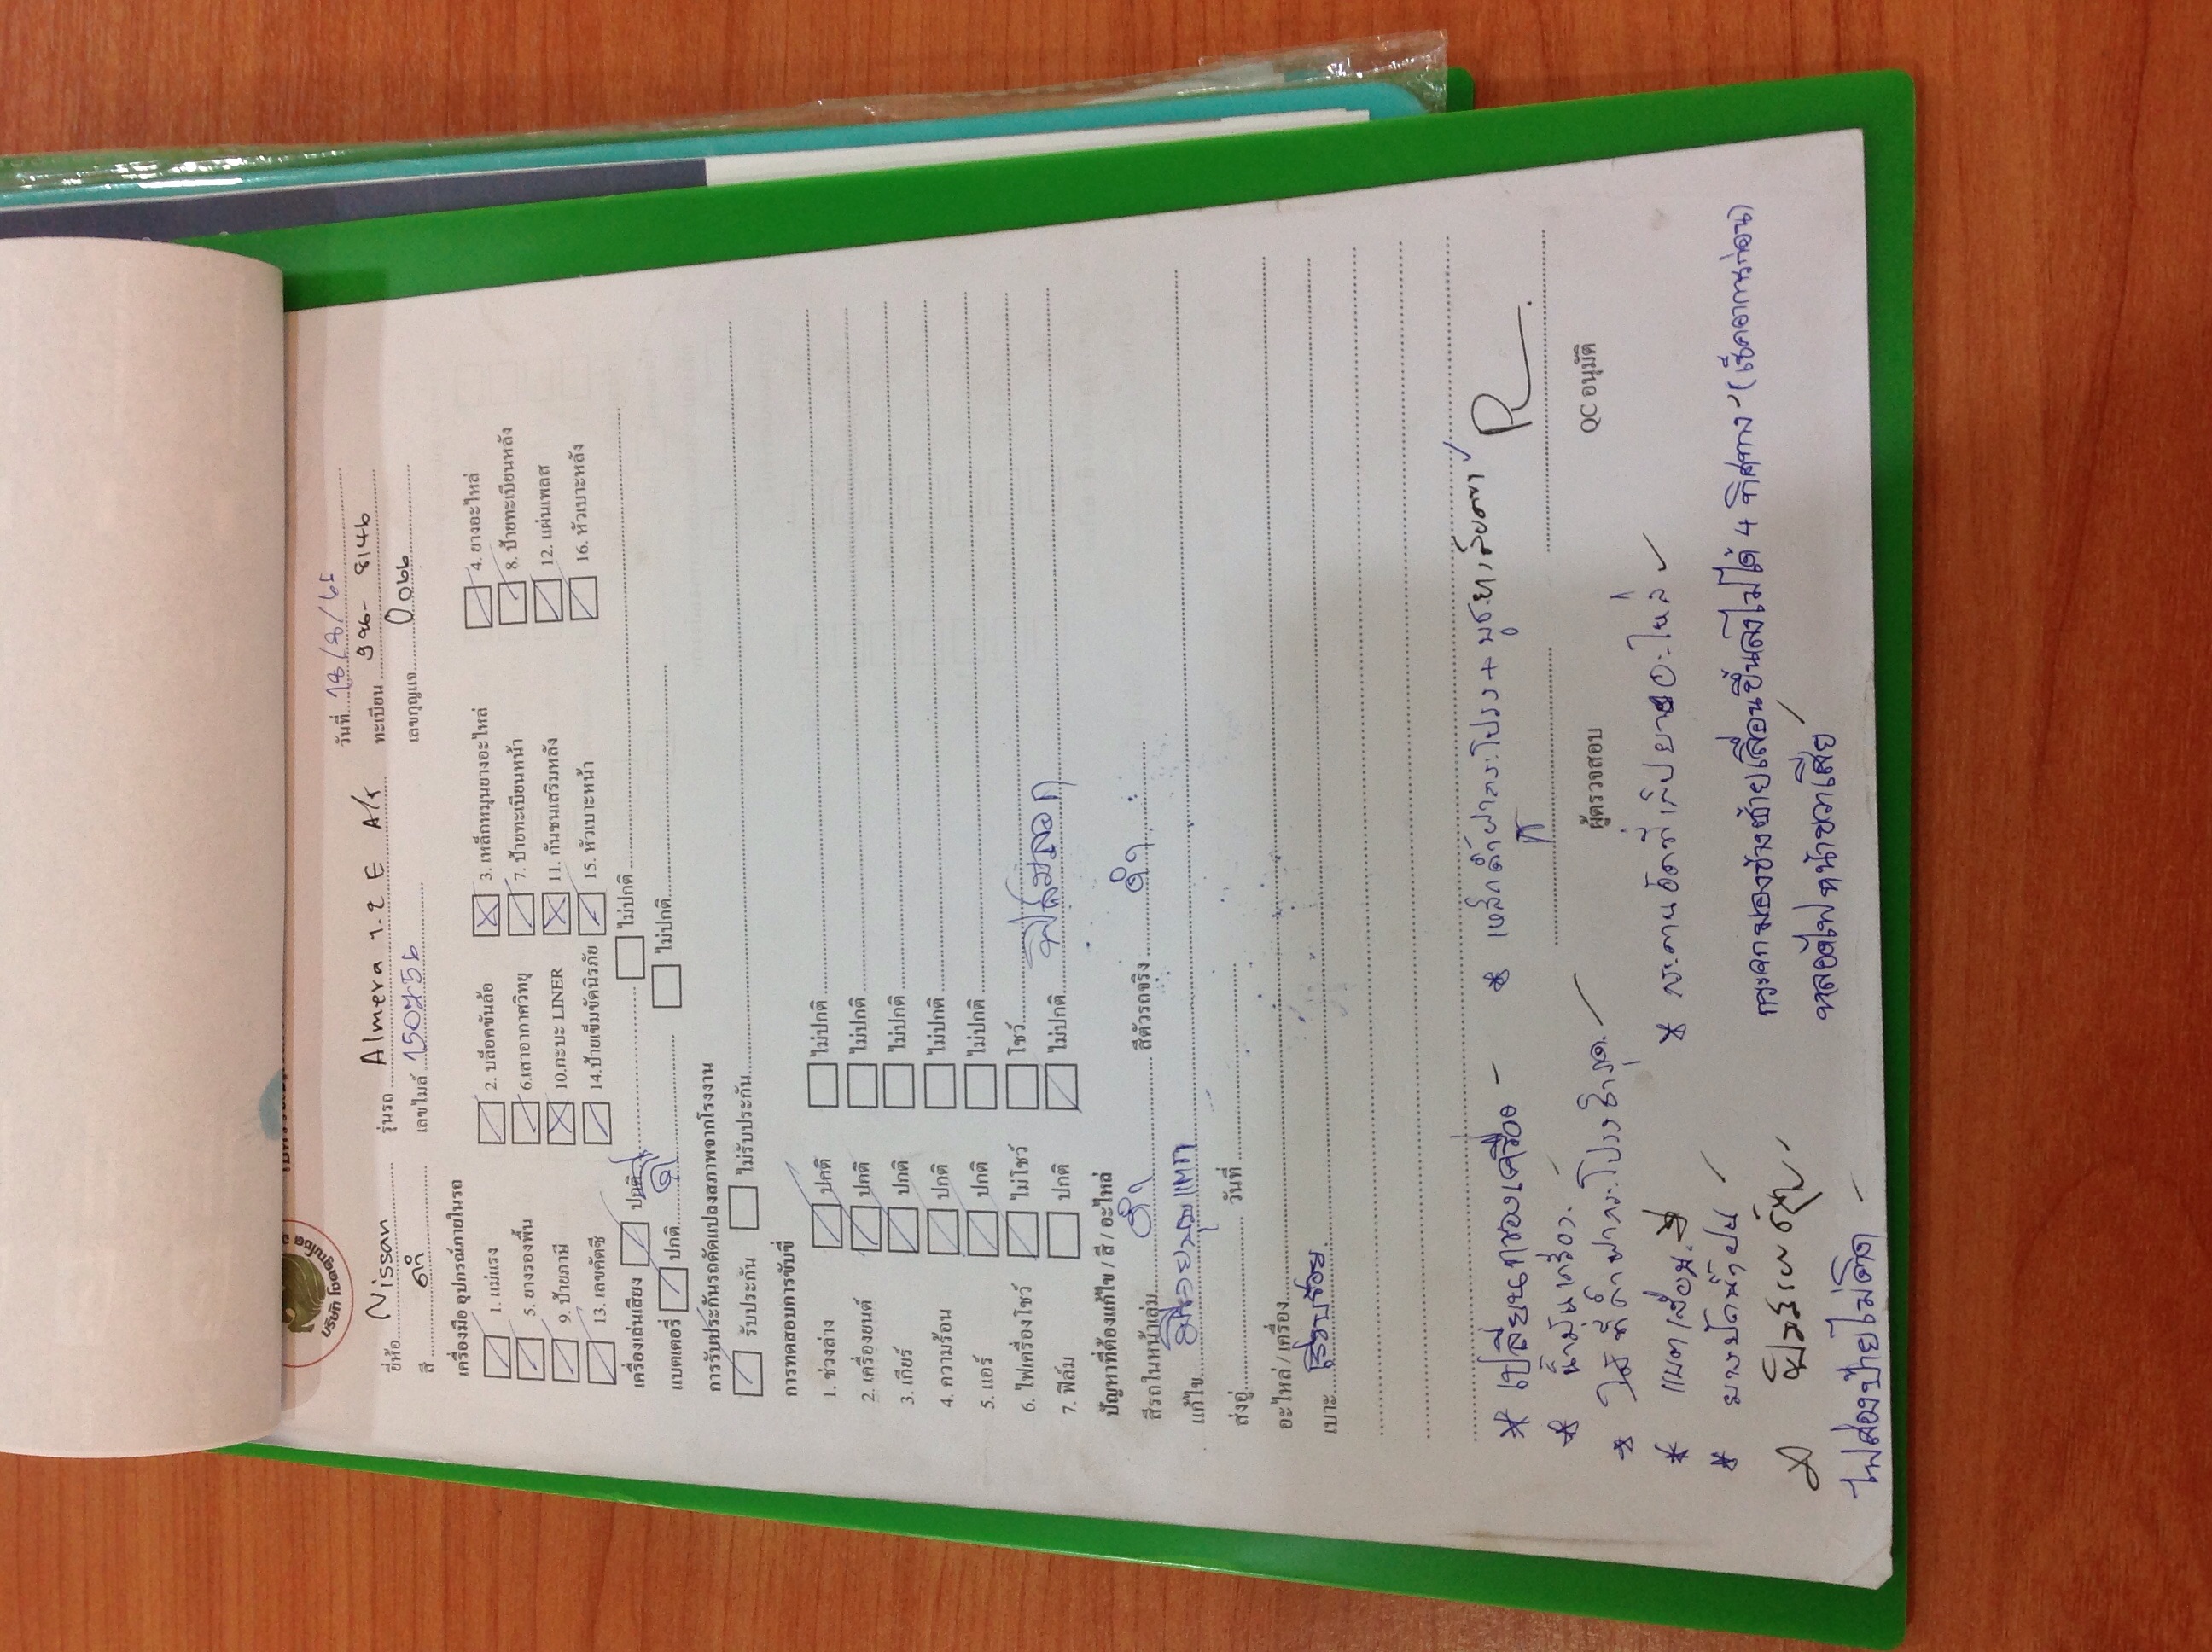 บริษัท
วันที่ 18/8/65
ยี่ห้อ Nissan รุ่นรถ Almera 1.2 E A/T ทะเบียน 8146
สี ดำ เลขไมล์ เลขกุญแจ
เครื่องมือ อุปกรณ์ภายในรถ
1. แม่แรง 2. บล็อคขันล้อ 3. เหล็กหมุนยางอะไหล่ 4. ยางอะไหล่
5. ยางรองพื้น 6.เสาอากาศวิทยุ 7. ป้ายทะเบียนหน้า 8. ป้ายทะเบียนหลัง
9. ป้ายภาษี 10.กะบะ LINER 11. กันชนเสริมหลัง 12. แผ่นเพลส
13. เลขคัตซี 14.ป้ายเข็มขัดนิรภัย 15. หัวเบาะหน้า 16. หัวเบาะหลัง
เครื่องเล่นเสียง ปกติ ไม่ปกติ
แบตเตอรี่ ปกติ ไม่ปกติ
การรับประกันรถดัดแปลงสภาพจากโรงงาน
รับประกัน ไม่รับประกัน
การทดสอบการขับขี่
1. ช่วงล่าง ปกติ ไม่ปกติ
2. เครื่องยนต์ ปกติ ไม่ปกติ
3. เกียร์ ปกติ ไม่ปกติ
4. ความร้อน ปกติ ไม่ปกติ
5. แอร์ ปกติ ไม่ปกติ
6. ไฟเครื่องโชว์ ไม่โชว์ โชว์
7. ฟิล์ม ปกติ ไม่ปกติ ฟิล์มลอก
ปัญหาที่ต้องแก้ไข / สี / อะไหล่
สีรถในหน้าเล่ม ดำ สีตัวรถจริง ดำ
แก้ไข
ส่งอู่ วันที่
อะไหล่ / เครื่อง
เบาะ เรียบร้อย
* เปลี่ยนกรองเครื่อง * เหล็กค้ำฝากระโปรง +
* น้ำมันเครื่อง
* ที่ค้ำฝากระโปรงชำรุด ผู้ตรวจสอบ QC อนุมัติ
* แบตเสื่อม * กระดานอัดที่เก็บยางอะไหล่
* ยางปัดน้ำฝน
กระจกมองข้างซ้ายเลื่อนขึ้นลงไม่ได้ 4 ทิศทาง (เช็คอาการก่อน)
หลอดไฟหน้าขวาเสีย
ไฟส่องป้ายไม่ติด